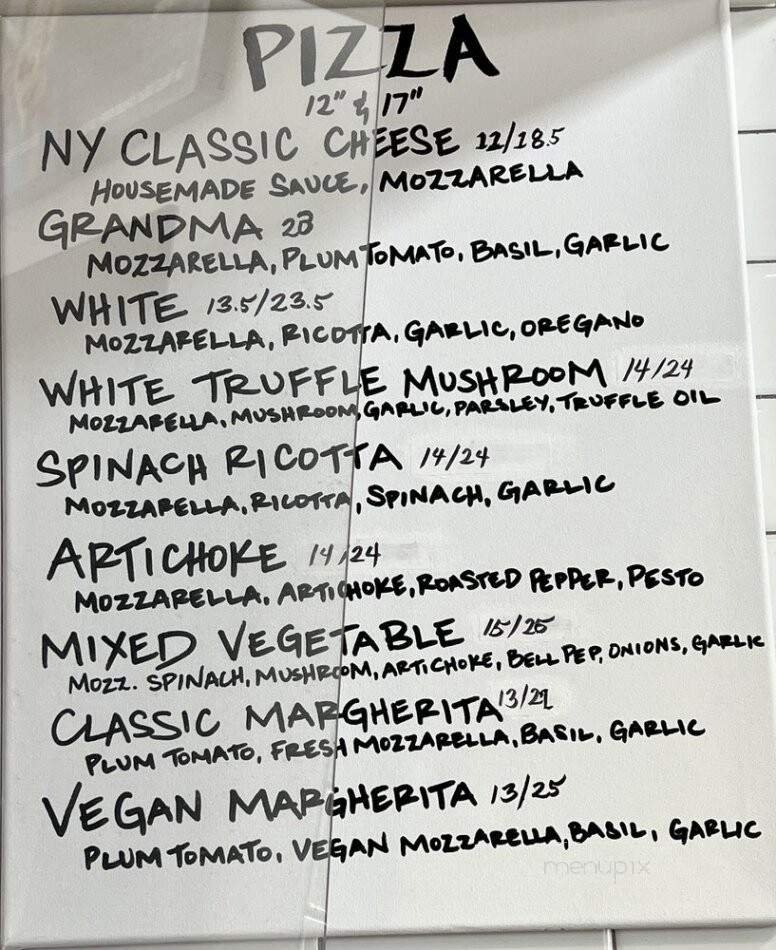 PIZZA
12" & 17"
NY CLASSIC CHEESE 12/18.5
HOUSEMADE SAUCE, MOZZARELLA
GRANDMA 23
MOZZARELLA, PLUM TOMATO, BASIL, GARLIC
WHITE 13.5/23.5
MOZZARELLA, RICOTTA, GARLIC, OREGANO
WHITE TRUFFLE MUSHROOM 14/24
MOZZARELLA, MUSHROOM, GARLIC, PARSLEY, TRUFFLE OIL
SPINACH RICOTTA 14/24
MOZZARELLA, RICOTTA, SPINACH, GARLIC
ARTICHOKE 14/24
MOZZARELLA, ARTICHOKE, ROASTED PEPPER, PESTO
MIXED VEGETABLE 15/25
MOZZ. SPINACH, MUSHROOM, ARTICHOKE, BELL PEP, ONIONS, GARLIC
CLASSIC MARGHERITA
PLUM TOMATO, FRESH MOZZARELLA, BASIL, GARLIC
VEGAN MARGHERITA 13/25
PLUM TOMATO, VEGAN MOZZARELLA, BASIL, GARLIC
menupix